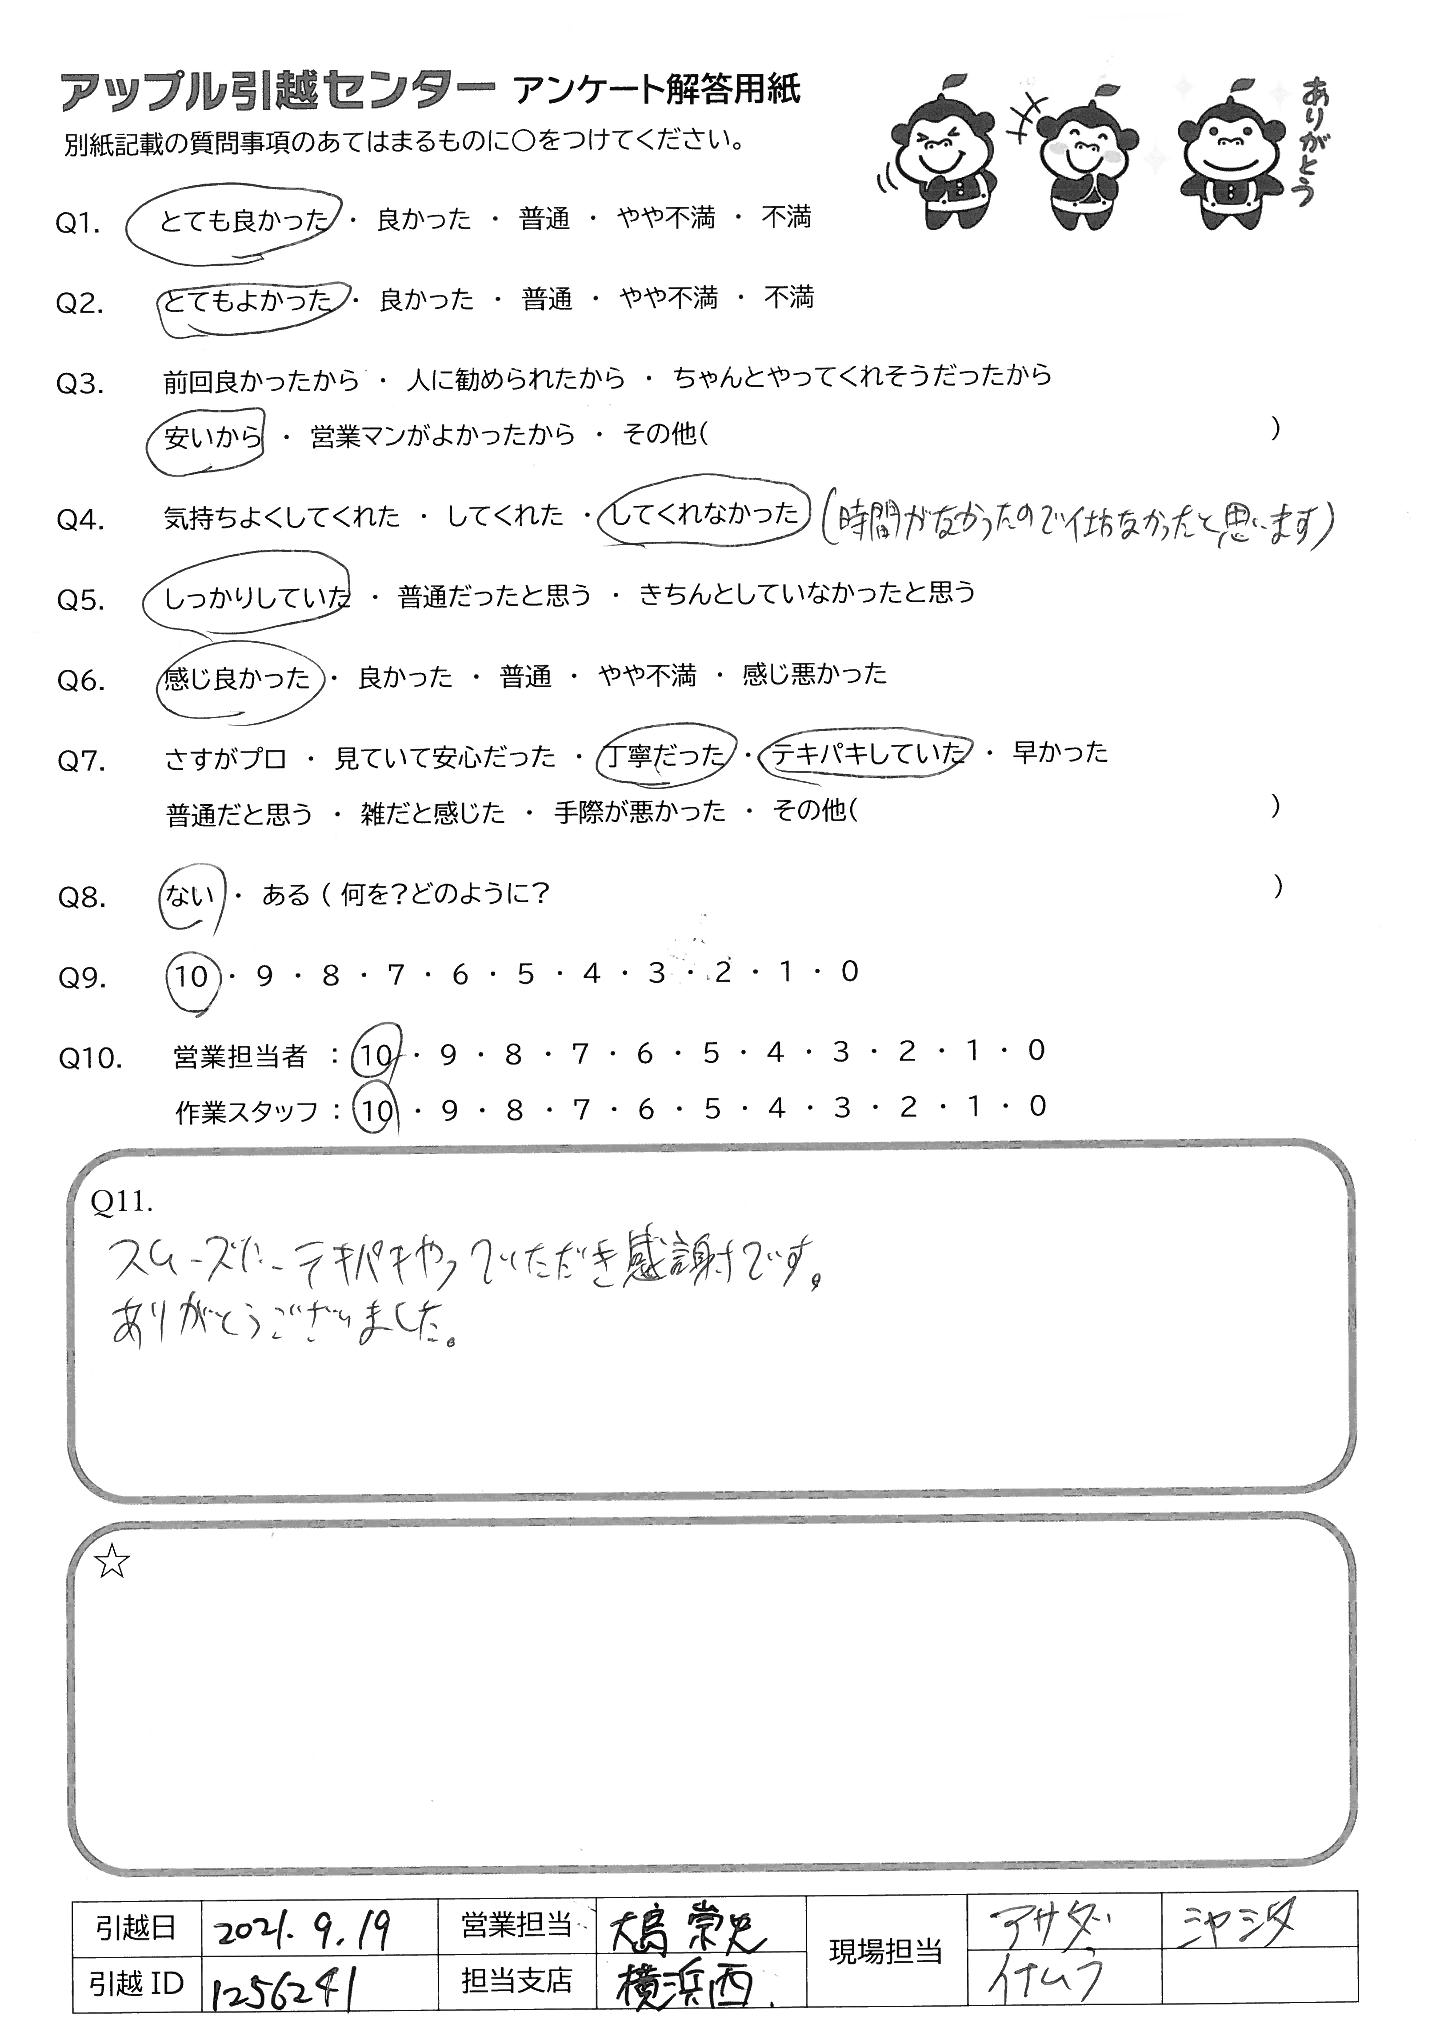 アップル引越センター アンケート解答用紙
別紙記載の質問事項のあてはまるものに○をつけてください。
ありがとう
Q1. とても良かった ・ 良かった ・ 普通 ・ やや不満 ・ 不満
Q2. とてもよかった ・ 良かった ・ 普通 ・ やや不満 ・ 不満
Q3. 前回良かったから ・ 人に勧められたから ・ ちゃんとやってくれそうだったから
安いから ・ 営業マンがよかったから ・ その他( )
Q4. 気持ちよくしてくれた ・ してくれた ・ してくれなかった (時間がなかったので仕方なかったと思います)
Q5. しっかりしていた ・ 普通だったと思う ・ きちんとしていなかったと思う
Q6. 感じ良かった ・ 良かった ・ 普通 ・ やや不満 ・ 感じ悪かった
Q7. さすがプロ ・ 見ていて安心だった ・ 丁寧だった ・ テキパキしていた ・ 早かった
普通だと思う ・ 雑だと感じた ・ 手際が悪かった ・ その他( )
Q8. ない ・ ある ( 何を?どのように? )
Q9. 10 ・ 9 ・ 8 ・ 7 ・ 6 ・ 5 ・ 4 ・ 3 ・ 2 ・ 1 ・ 0
Q10. 営業担当者 : 10 ・ 9 ・ 8 ・ 7 ・ 6 ・ 5 ・ 4 ・ 3 ・ 2 ・ 1 ・ 0
作業スタッフ : 10 ・ 9 ・ 8 ・ 7 ・ 6 ・ 5 ・ 4 ・ 3 ・ 2 ・ 1 ・ 0
Q11.
スムーズにテキパキやっていただき感謝です。
ありがとうございました。
☆
引越日 2021.9.19 営業担当 大島 崇史 現場担当 アサダ ミヤシタ
引越 ID 1256241 担当支店 横浜西. イナムラ